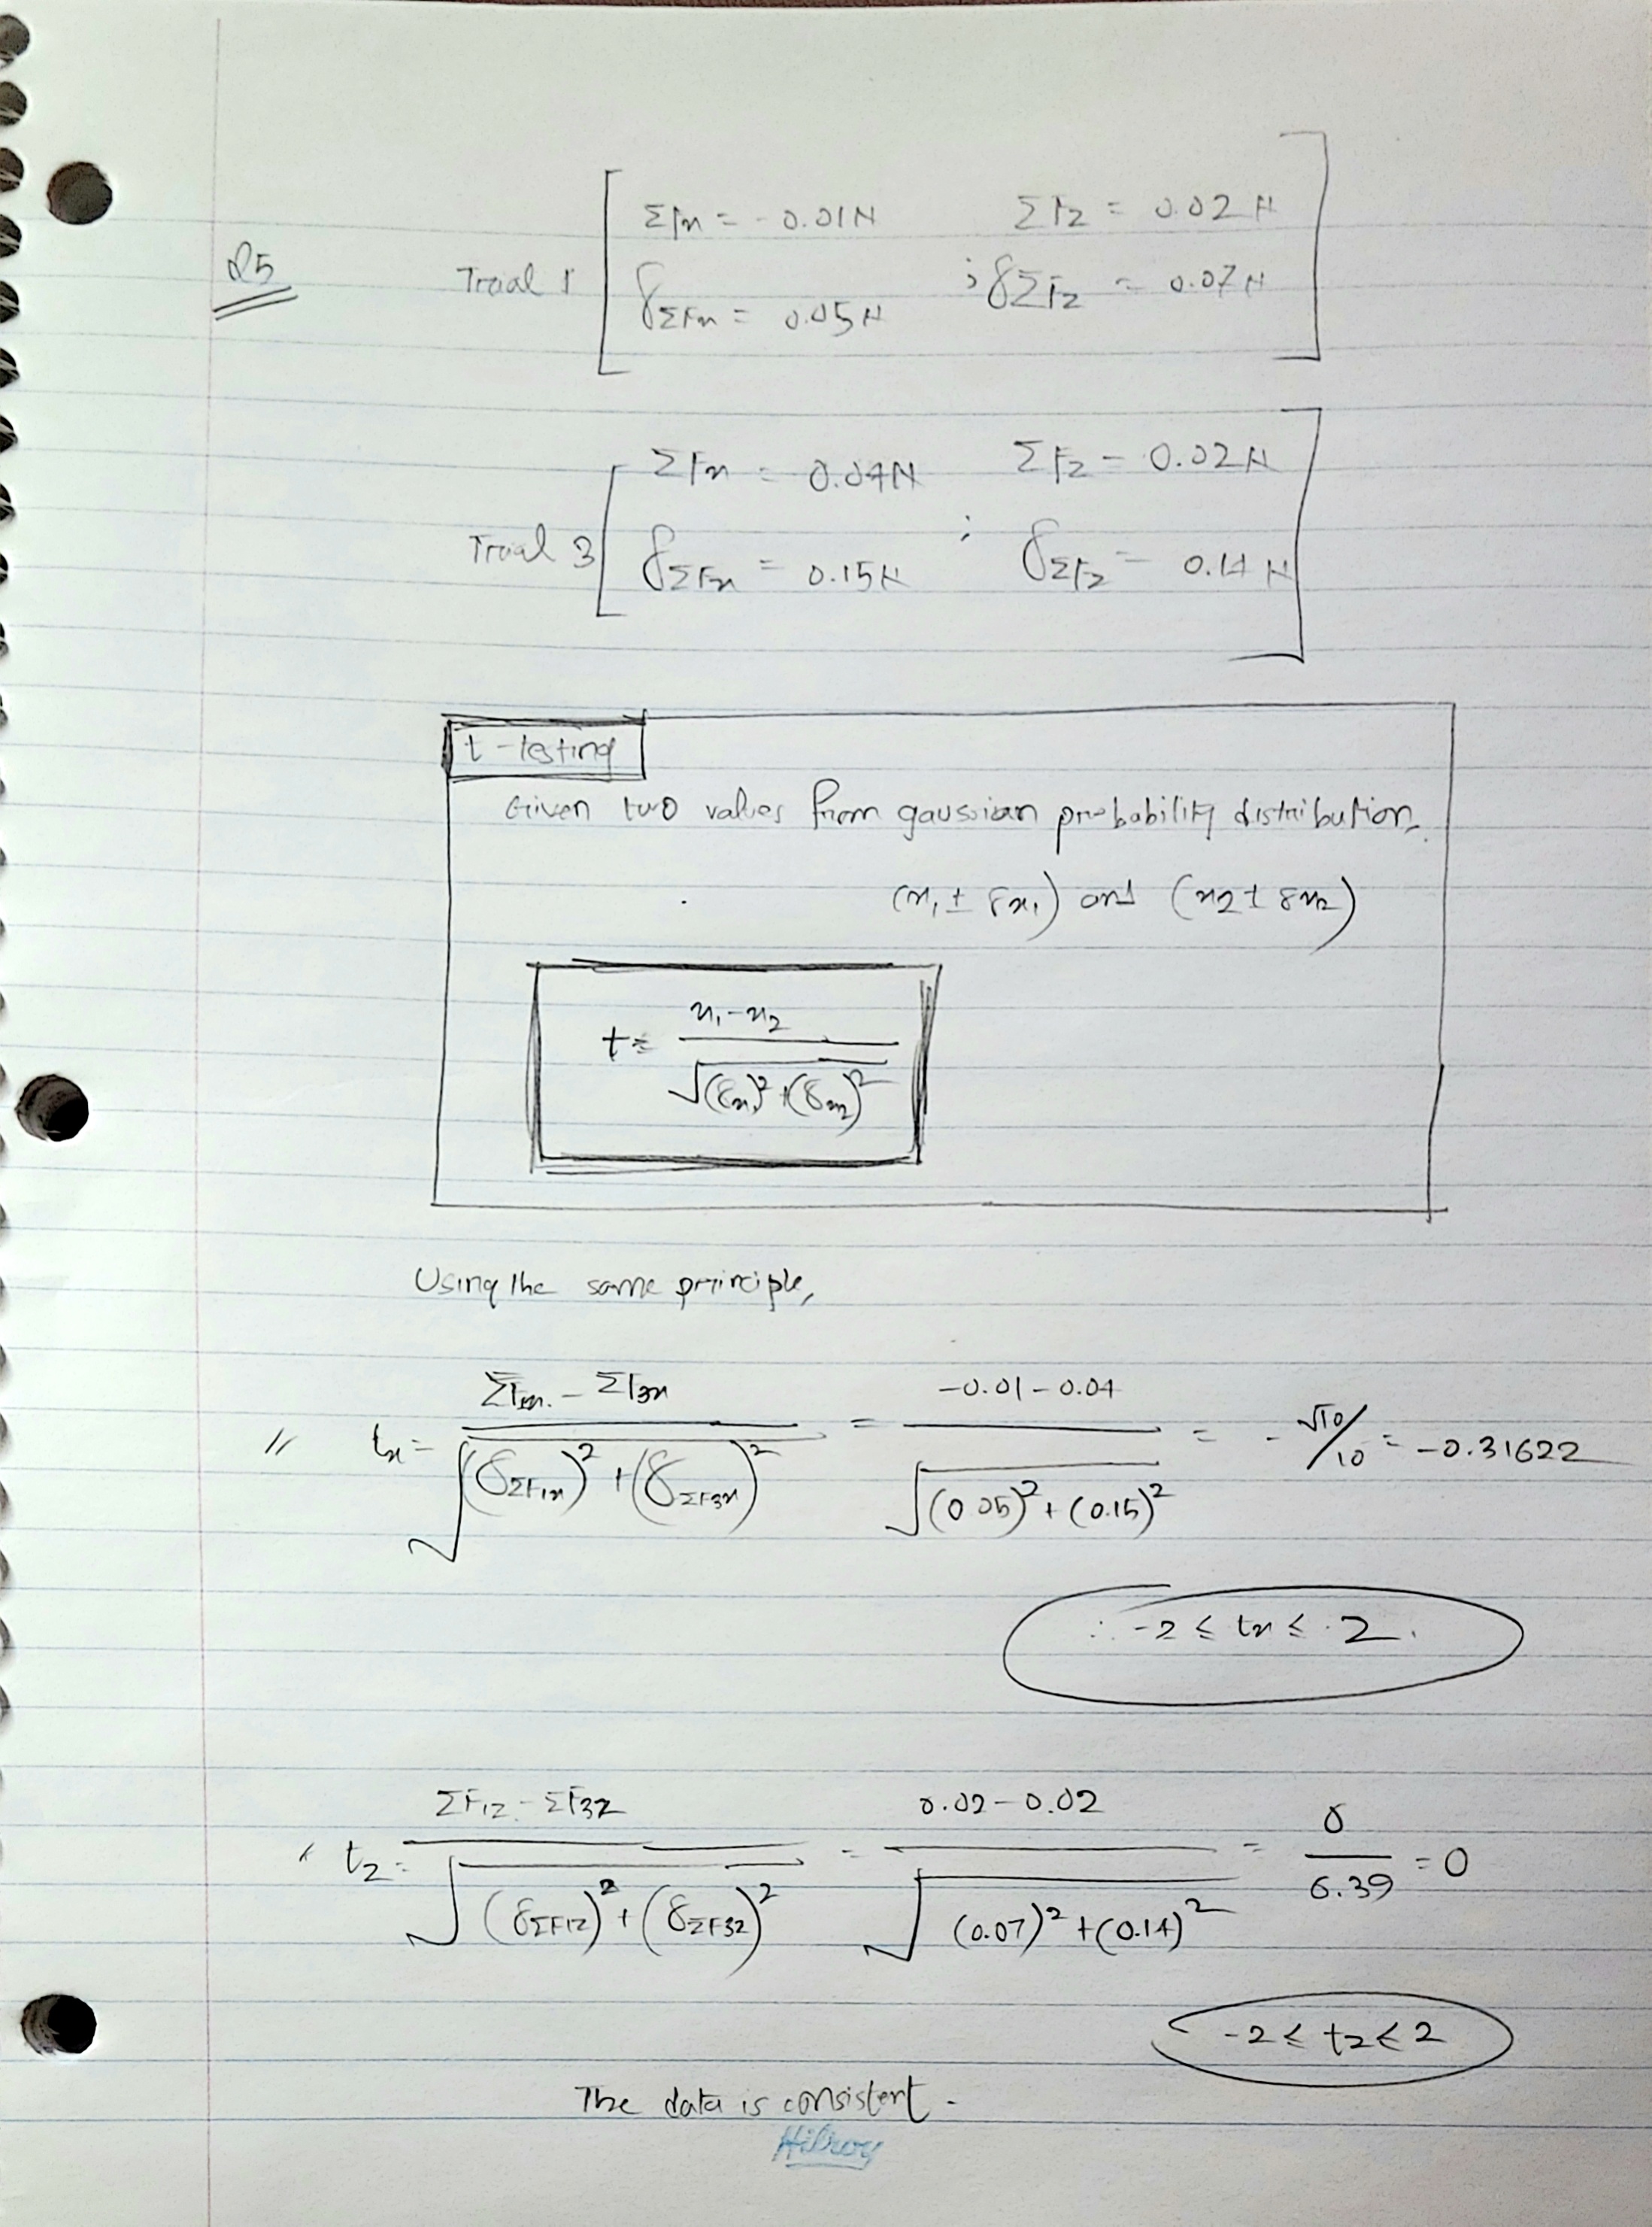 Q5
Trial 1
ΣFx = -0.01N ΣFz = 0.02 N
δΣFx = 0.05 N ; δΣFz = 0.07 N
Trial 3
ΣFx = 0.04N ΣFz = 0.02N
δΣFx = 0.15N ; δΣFz = 0.14 N
t-testing
Given two values from gaussian probability distribution,
(x₁ ± δx₁) and (x2 ± δx2)
t = x₁-x₂ / √((δx₁)² + (δx2)²)
Using the same principle,
// tx = ΣF1x - ΣF3x / √((δΣF1x)² + (δΣF3x)²) = -0.01-0.04 / √((0.05)² + (0.15)²) = - √10/10 = -0.31622
∴ -2 ≤ tx ≤ 2.
tz = ΣF1z - ΣF3z / √((δΣF1z)² + (δΣF3z)²) = 0.02-0.02 / √((0.07)² + (0.14)²) = 0 / 6.39 = 0
-2 ≤ tz ≤ 2
The data is consistent.
Hilroy